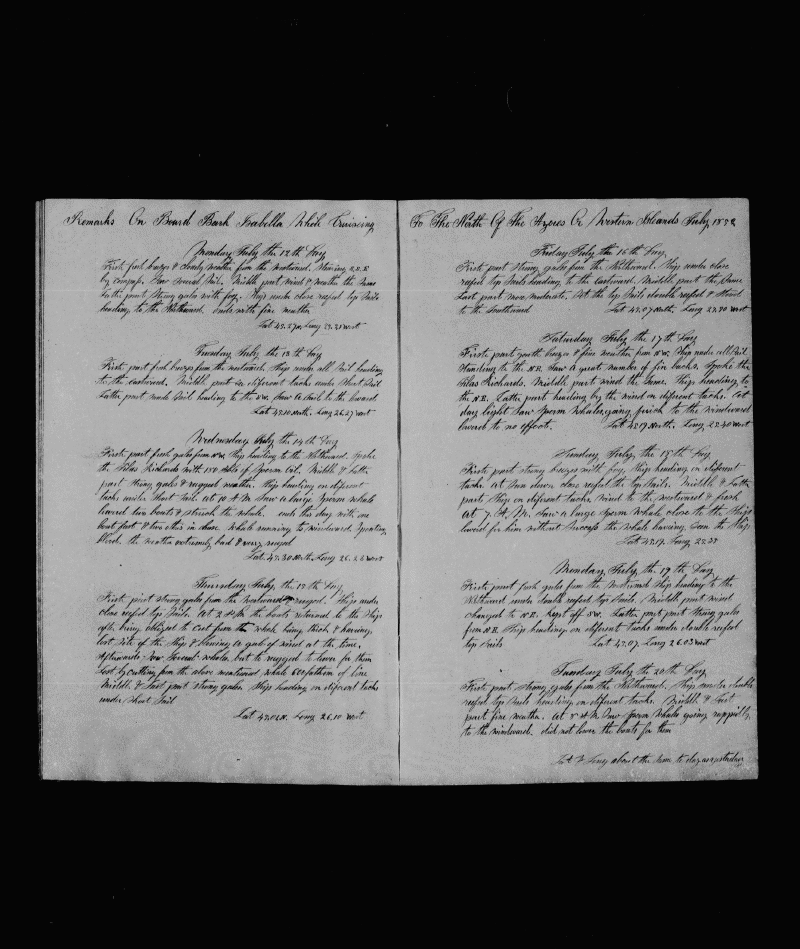 Remarks On Board Bark Isabella While Cruising
Monday July the 12th Day
First part fresh breezes & cloudy weather from the westward, steering E.S.E
by compass. Saw several Sail. Middle part wind & weather the same
Latter part Strong gales with fog. Ship under close reefed top Sails
heading to the Northward. ends with fine weather
Lat 43.27 N. Long 29.25 West
Tuesday July the 13th Day
First part fresh breezes from the westward, Ship under all Sail heading
to the eastward. Middle part on diferent tacks under Short Sail
Latter part made Sail heading to the SW. Saw a Sail to the leward
Lat 43.10 North. Long 26.27 West
Wednesday July the 14th Day
First part fresh gales from SW. Ship heading to the Northward. Spoke
the Silas Richards with 150 bbls of Sperm Oil. Middle & Latter
part strong gales & rugged weather. Ship heading on diferent
tacks under Short Sail. At 10 A.M. Saw a large Sperm whale
lowered two boats & struck the whale. ends this day with one
boat fast & two others in chase. Whale running to windward Spouting
Blood. the weather extremely bad & very rugged
Lat. 43.30 North. Long 26. West
Thursday July, the 15th Day
First part strong gales from the Westward & rugged. Ship under
close reefed top Sails. At 2 P.M. the boats returned to the Ship
after being obliged to Cut from the whale being thick & having
lost site of the Ship & blowing a gale of wind at the time,
Afterwards Saw Several whales, but to rugged to lower for them
Lost by cutting from the above mentioned whale 600 fathom of line
Middle & Last part strong gales. Ship heading on diferent tacks
under Short Sail
Lat 43.01 N. Long 26.10 West
To The North Of The Azores Or Western Islands July 1852
Friday July the 16th Day,
First part Strong gales from the Northward. Ship under close
reefed top Sails heading to the eastward. Middle part the Same
Last part more moderate. Set the top Sails double reefed & Stood
to the Southward Lat 43.07 North. Long 23.30 West
Saturday July, the 17th Day
First part gentle breezes & fine weather from NW. Ship under all Sail
Standing to the NE. Saw a great number of fin backs. Spoke the
Silas Richards. Middle part wind the Same. Ship heading to
the NE. Latter part heading by the wind on diferent tacks. At
day light Saw Sperm Whales, going quick to the windward
lowered to no effect. Lat 43.19 North. Long 25.40 West
Sunday July, the 18th Day
First part strong breezes with fog, Ship heading on diferent
tacks. At Sun down close reefed the top Sails. Middle & Latter
part Ship on diferent tacks wind to the westward & fresh
at 7 A.M. Saw a large Sperm Whale close to the Ship
lowered for him without Success the whale having Seen the Ship
Lat 43.17. Long 25.33
Monday July, the 19th Day
First part fresh gales from the Westward Ship heading to the
Northward under double reefed top Sails. Middle part wind
changed to NE. Kept off SW. Latter part part Strong gales
from NE. Ship heading on different tacks under double reefed
top Sails Lat 43.07. Long 26.03 West
Tuesday July the 20th Day,
First part strong gales from the Northward. Ship under double
reefed top Sails heading on diferent tacks. Middle & Last
part fine weather. At 5 A.M. Saw Sperm Whales going rappidly
to the windward. did not lower the boats for them
Lat & Long about the Same to day as yestaday